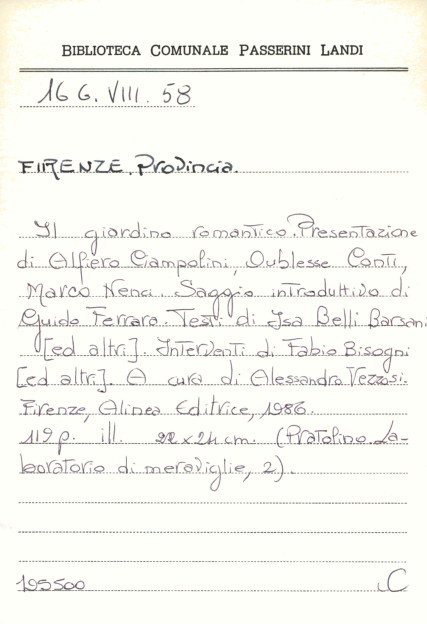 BIBLIOTECA COMUNALE PASSERINI LANDI
16 G. VIII. 58
FIRENZE. Provincia.
Il giardino romantico. Presentazione
di Alfiero Ciampolini, Oublesse Conti,
Marco Nenci. Saggio introduttivo di
Guido Ferrara. Testi di Isa Belli Barsani
[ed altri]. Interventi di Fabio Bisogni
[ed altri]. A cura di Alessandro Vezzosi.
Firenze, Alinea Editrice, 1986.
119 p. ill. 22x24 cm. (Pratolino. La-
boratorio di meraviglie, 2).
195500 C